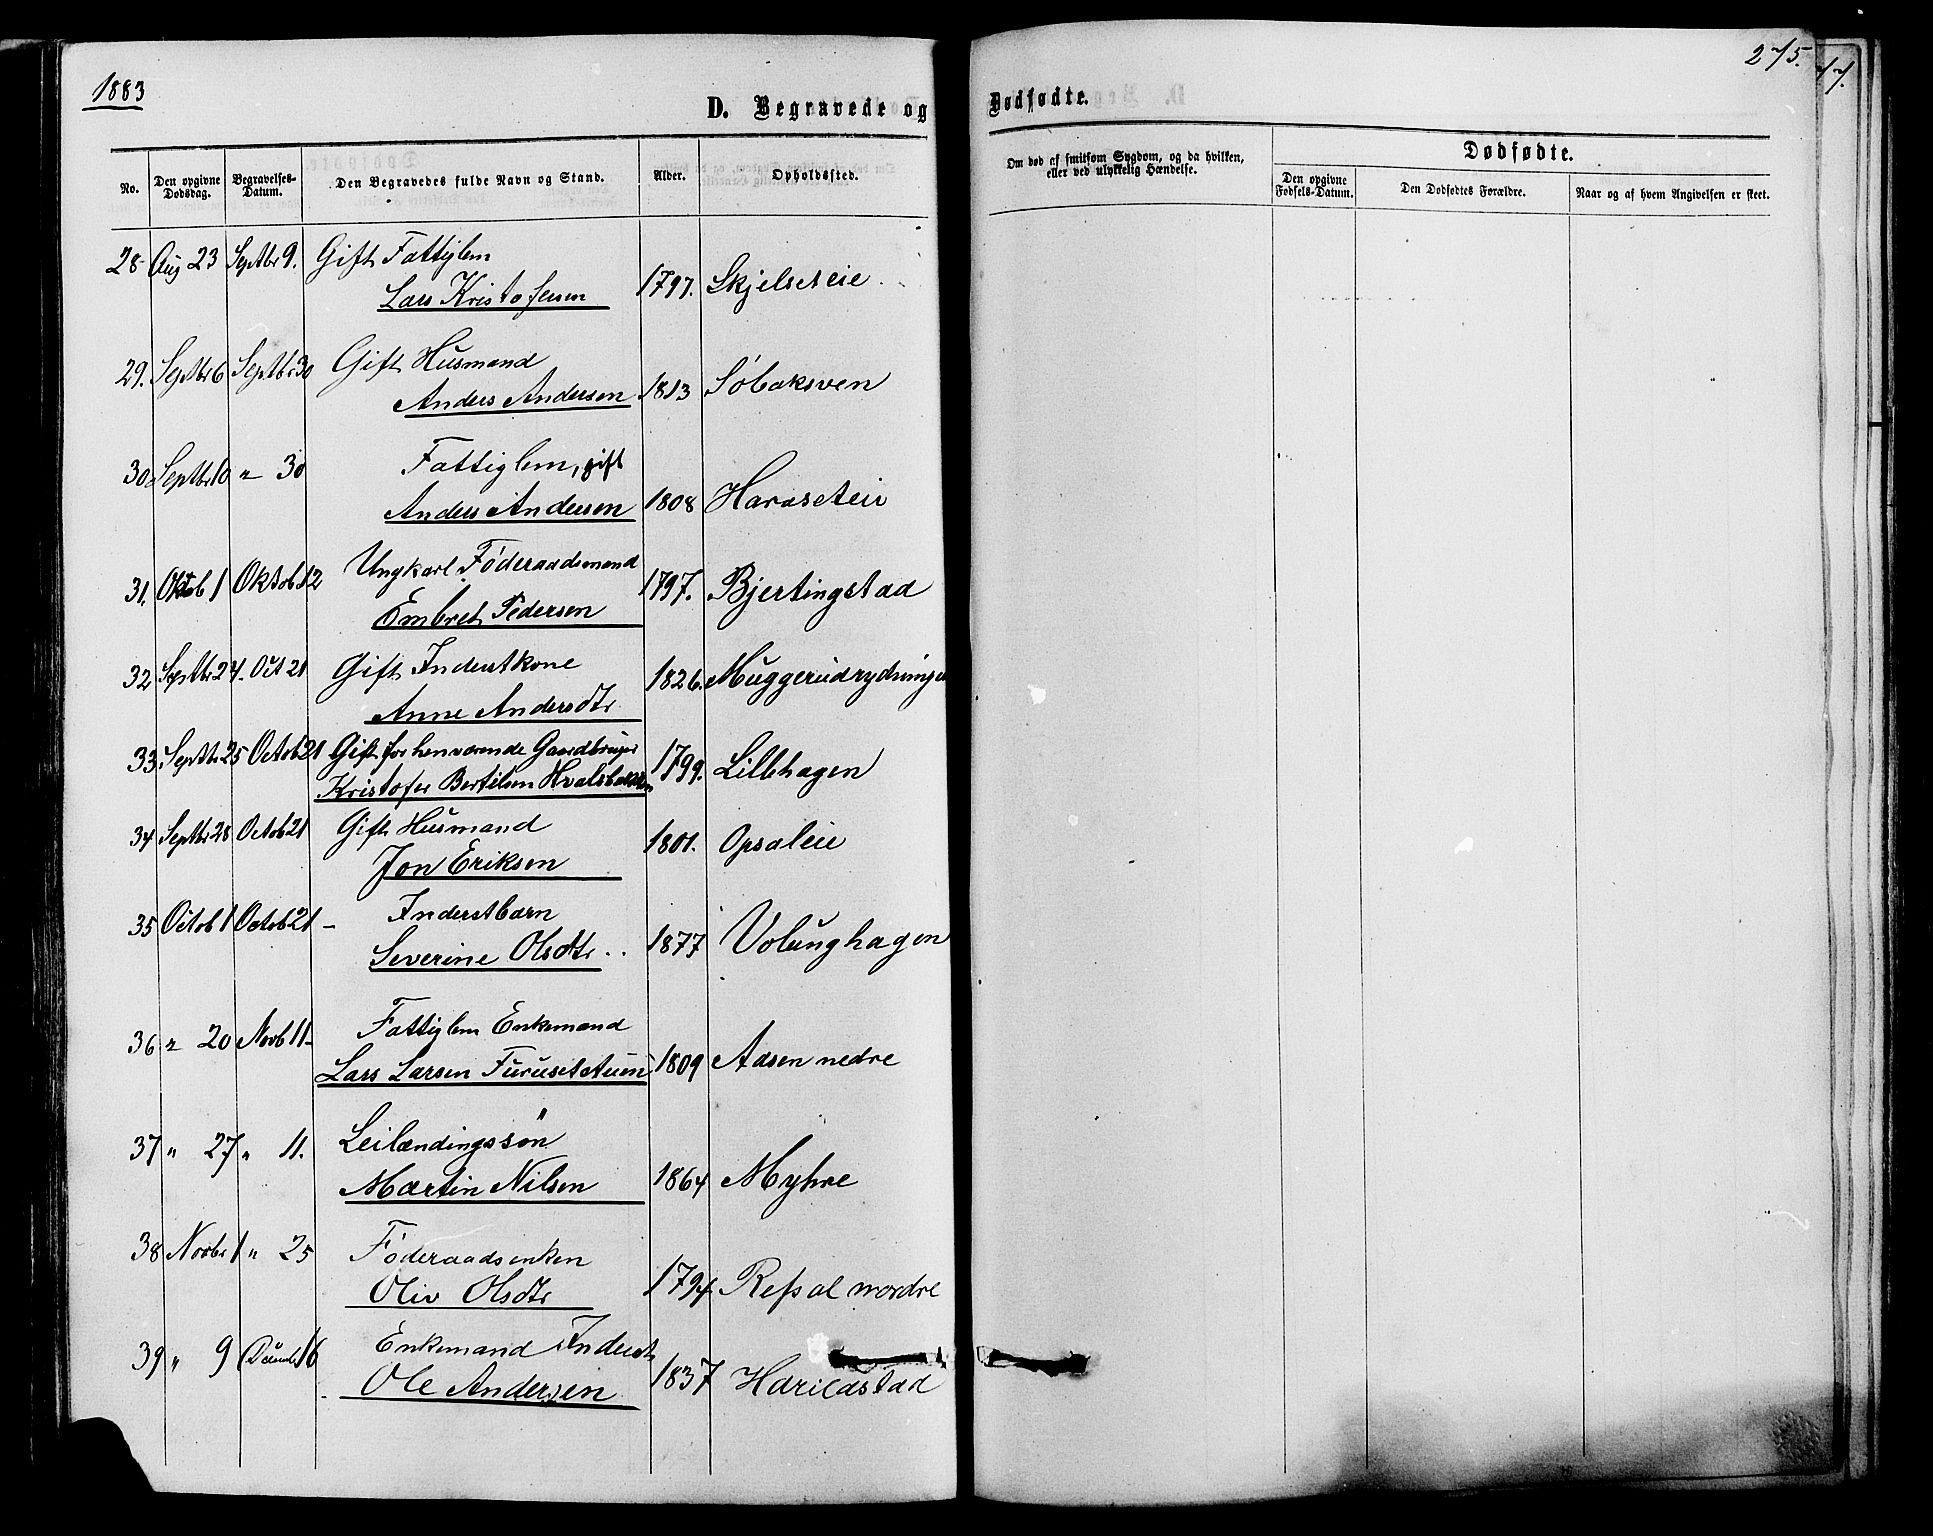 1883
275.
17.
D. Begravede og Dødfødte.
No.
Den opgivne Dødsdag.
Begravelses-Datum.
Den Begravedes fulde Navn og Stand.
Alder.
Opholdssted.
Om død af smitsom Sygdom, og da hvilken, eller ved ulykkelig Hændelse.
Dødfødte.
Den opgivne Fødsels-Datum.
Den Dødfødtes Forældre.
Naar og af hvem Angivelsen er skeet.
28 Aug 23 Septbr 9. Gift Fattiglem
Lars Kristofersen 1797. Skjelseteie
29. Septbr 6 Septbr 30 Gift Husmand
Anders Andersen 1813 Sobaksven
30 Septbr 10 " 30 Fattiglem, gift
Anders Andersen 1808 Haraseteie
31. Oktob 1 Oktob 12 Ungkarl Föderaadsmand
Embret Pedersen 1797. Bjertingstad
32 Septbr 24. Oct 21 Gift Inderstkone
Anne Andersdtr 1826. Muggerudrydningen
33 Septbr 25 Octob 21 Gift forhenværende Gaardbruger
Kristofer Bertilsen Hvalsbakken 1799. Lillehagen
34 Septbr 28 Octob 21 Gift Husmand
Jon Eriksen 1801. Opsaleie
35 Octob 1 Octob 21 - Inderstbarn
Severine Olsdtr 1877 Volunghagen
36 " 20 Novb 11 - Fattiglem Enkemand
Lars Larsen Furusettuen 1809 Aasen nedre
37 " 27 " 11. Leilændingssön
Martin Nilsen 1864 Myhre
38 Novbr 1 " 25 Föderaadsenken
Oliv Olsdtr 1794 Refsal nordre
39 " 9 16 Enkemand Inderst
Ole Andersen 1837 Harildstad